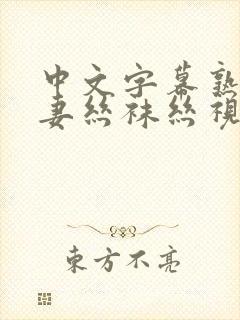 中文字幕熟
妻丝袜丝视
东方不亮